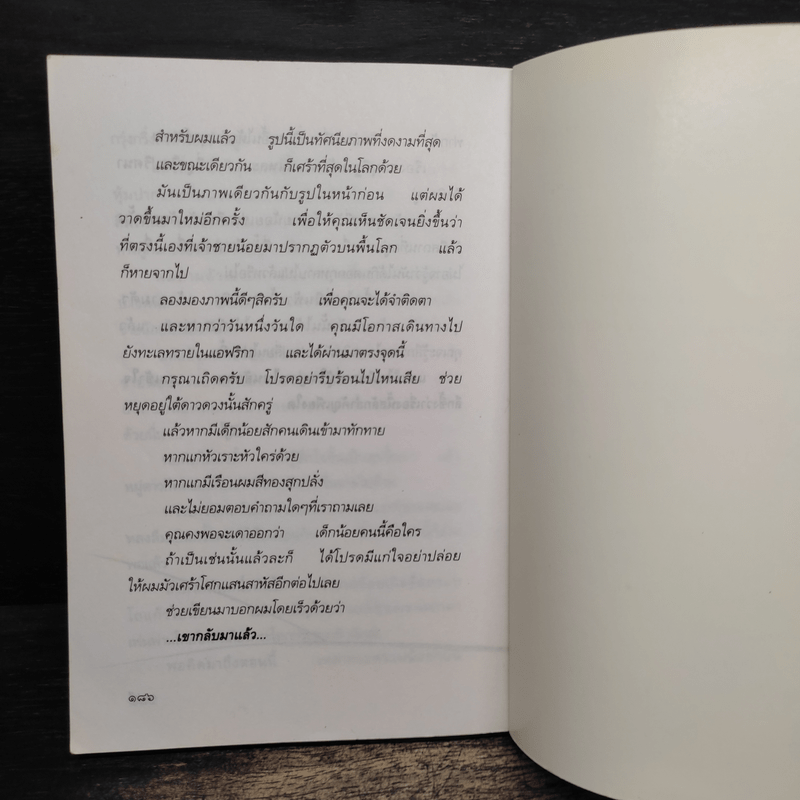 สำหรับผมแล้ว รูปนี้เป็นทัศนียภาพที่งดงามที่สุด
และขณะเดียวกัน ก็เศร้าที่สุดในโลกด้วย
มันเป็นภาพเดียวกันกับรูปในหน้าก่อน แต่ผมได้
วาดขึ้นมาใหม่อีกครั้ง เพื่อให้คุณเห็นชัดเจนยิ่งขึ้นว่า
ที่ตรงนี้เองที่เจ้าชายน้อยมาปรากฏตัวบนพื้นโลก แล้ว
ก็หายจากไป
ลองมองภาพนี้ดีๆสิครับ เพื่อคุณจะได้จำติดตา
และหากว่าวันหนึ่งวันใด คุณมีโอกาสเดินทางไป
ยังทะเลทรายในแอฟริกา และได้ผ่านมาตรงจุดนี้
กรุณาเถิดครับ โปรดอย่ารีบร้อนไปไหนเสีย ช่วย
หยุดอยู่ใต้ดาวดวงนั้นสักครู่
แล้วหากมีเด็กน้อยสักคนเดินเข้ามาทักทาย
หากแกหัวเราะหัวใคร่ด้วย
หากแกมีเรือนผมสีทองสุกปลั่ง
และไม่ยอมตอบคำถามใดๆที่เราถามเลย
คุณคงพอจะเดาออกว่า เด็กน้อยคนนี้คือใคร
ถ้าเป็นเช่นนั้นแล้วละก็ ได้โปรดมีแก่ใจอย่าปล่อย
ให้ผมมัวเศร้าโศกแสนสาหัสอีกต่อไปเลย
ช่วยเขียนมาบอกผมโดยเร็วด้วยว่า
...เขากลับมาแล้ว...
๑๘๖